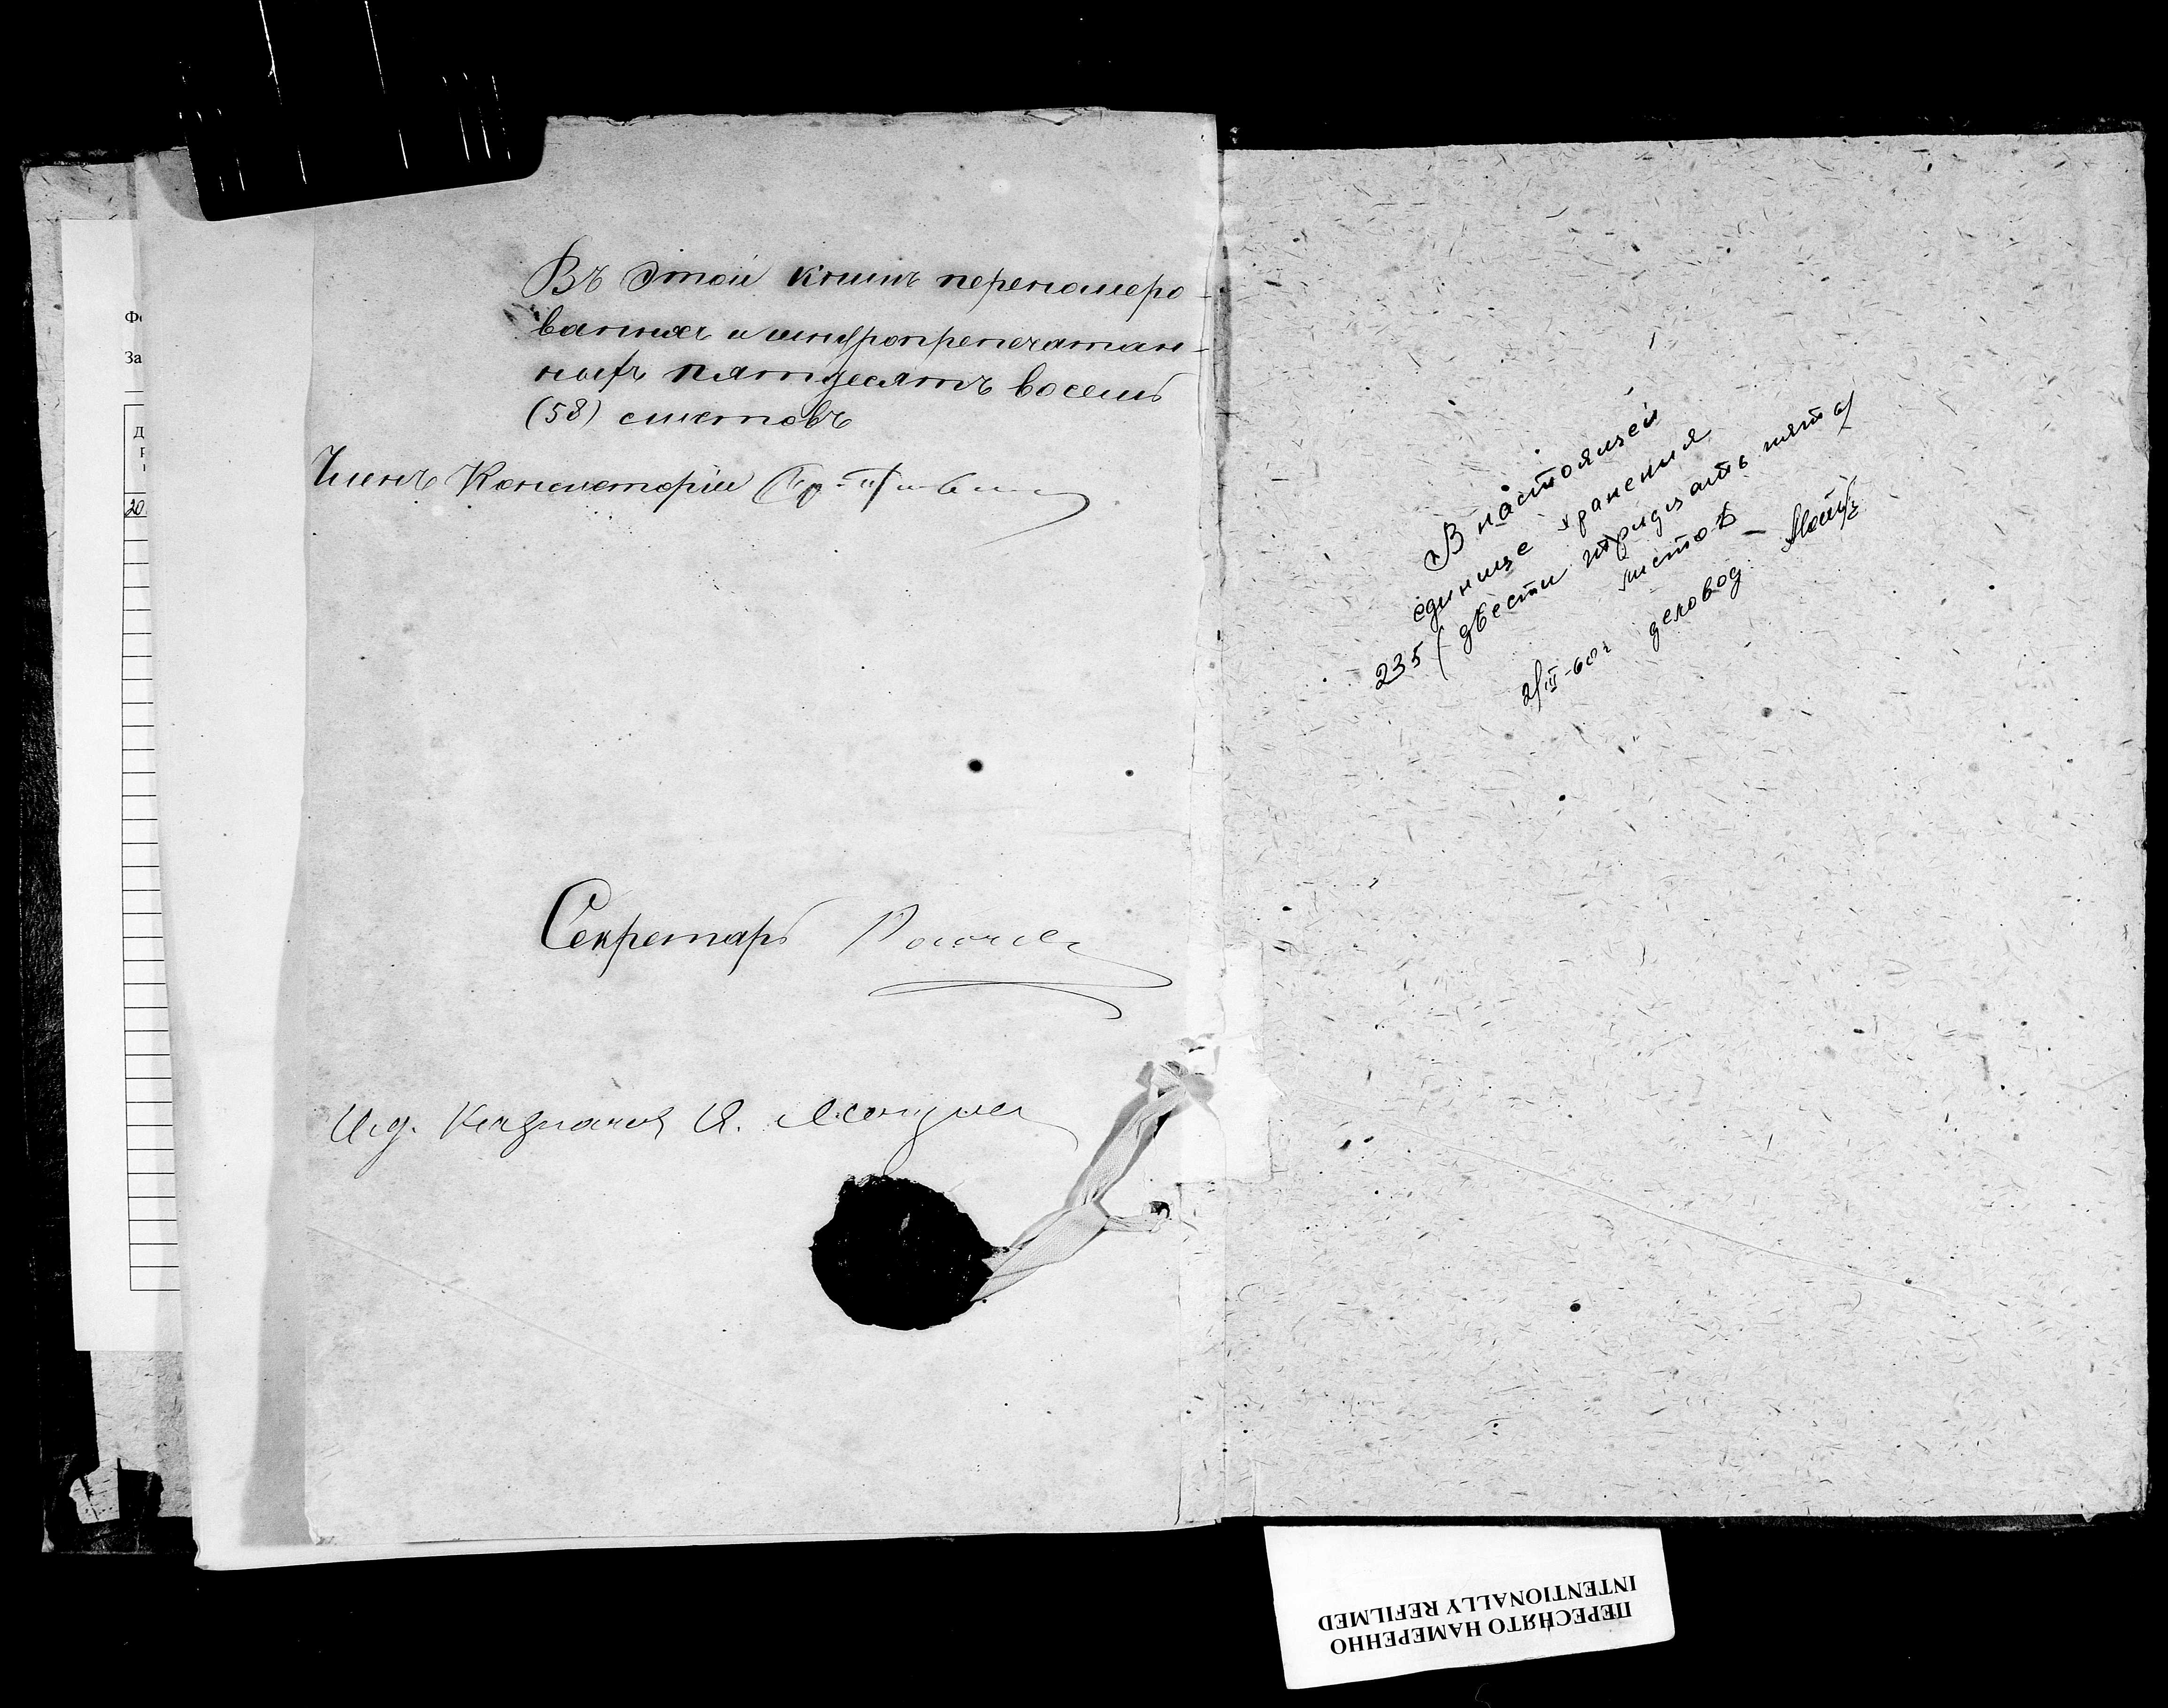 Фо
За
20
Въ этой книгѣ перенумеро-
ванныхъ и шнуропрепечатан-
ныхъ пятьдесятъ восемь
(58) листовъ
Членъ Консисторіи
Секретарь
И.д. Казначея
В настоящей
единице хранения
235 (двести тридцать пять)
листов —
2/III-60г деловод
ПЕРЕСНЯТО НАМЕРЕННО
INTENTIONALLY REFILMED